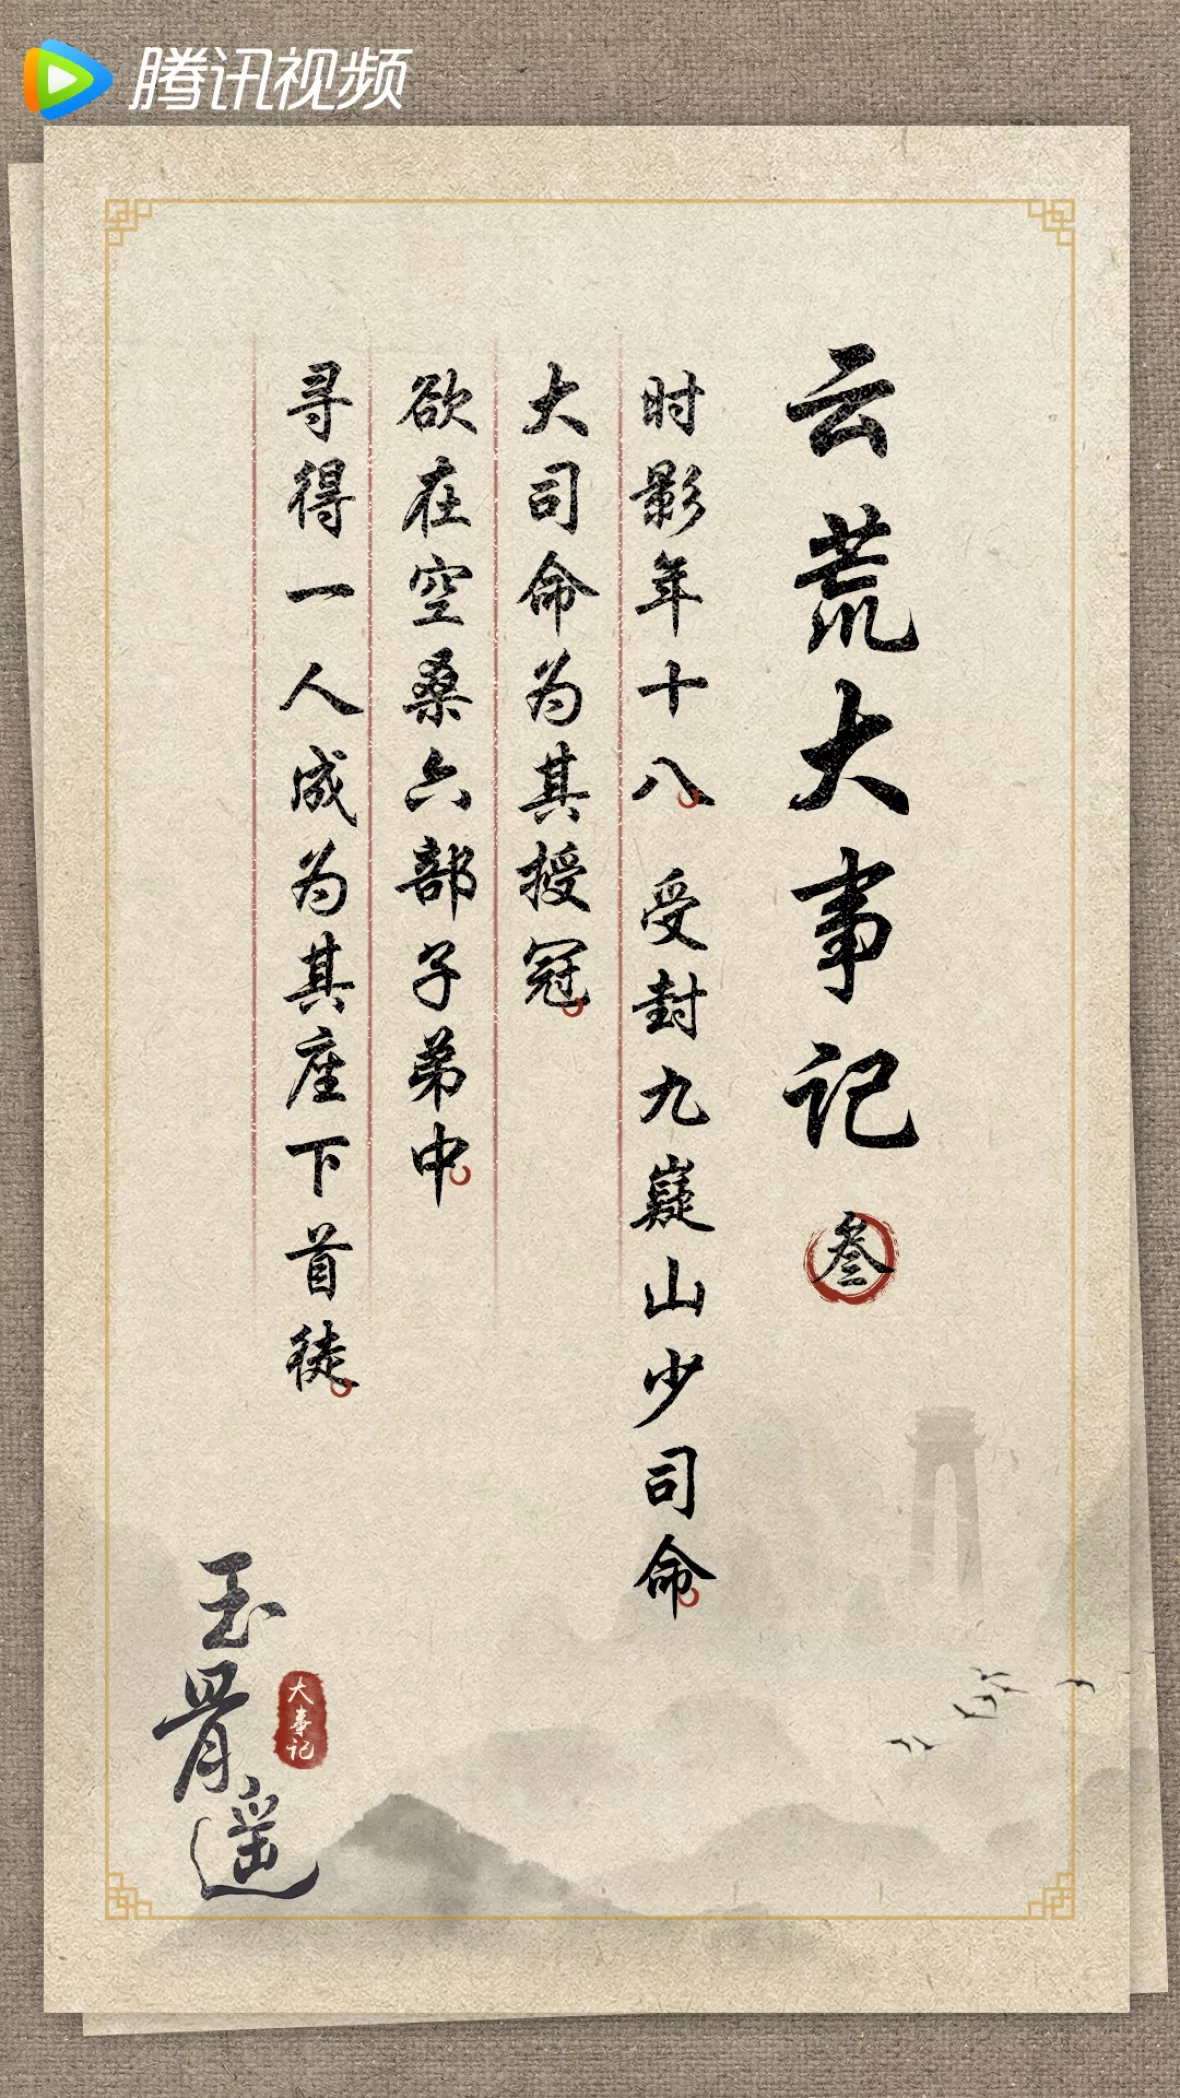 腾讯视频
云荒大事记
叁
时影年十八 受封九嶷山少司命
大司命为其授冠
欲在空桑六部子弟中
寻得一人成为其座下首徒
玉骨遥
大事记